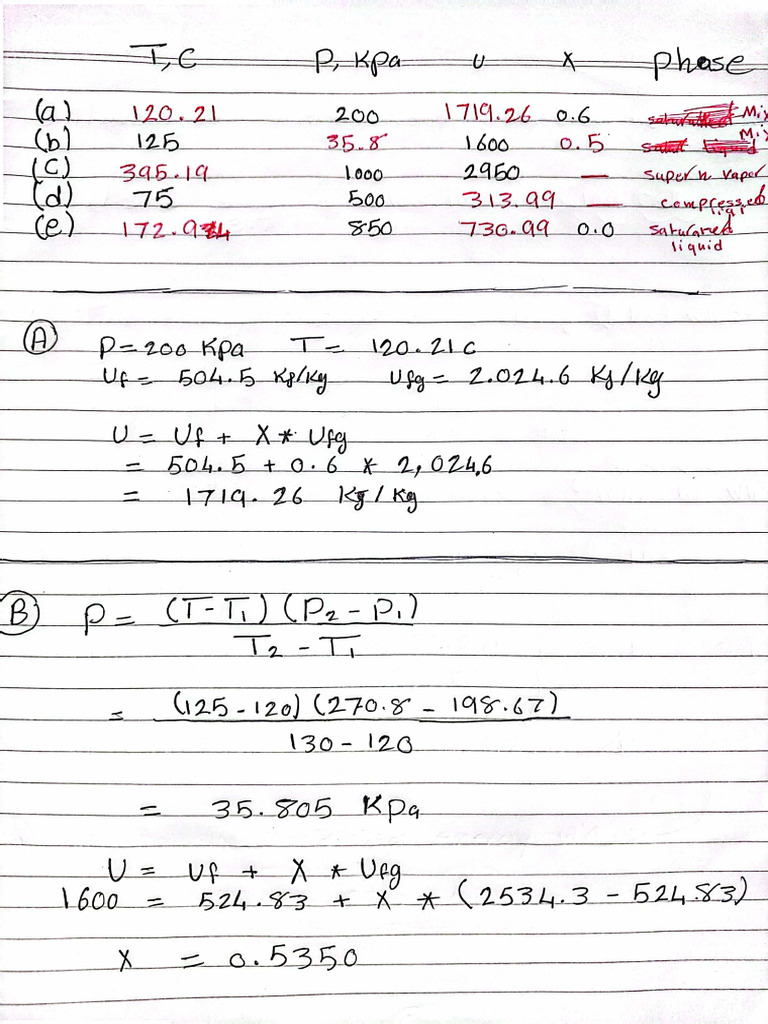 T,C P, KPa U X phase
(a) 120.21 200 1719.26 0.6 Mix
(b) 125 35.8 1600 0.5 Mi
(C) 395.19 1000 2950 — super n vaper
(d) 75 500 313.99 — compressed
(e) 172.94 850 730.99 0.0 saturared
liquid
A P = 200 KPa T = 120.21 c
Uf = 504.5 KJ/Kg Ufg = 2.024.6 KJ/Kg
U = Uf + X * Ufg
= 504.5 + 0.6 * 2,024.6
= 1719.26 KJ/Kg
B P = (T-T1) (P2 - P1)
T2 - T1
= (125-120) (270.8 - 198.67)
130 - 120
= 35.805 KPa
U = Uf + X * Ufg
1600 = 524.83 + X * (2534.3 - 524.83)
X = 0.5350